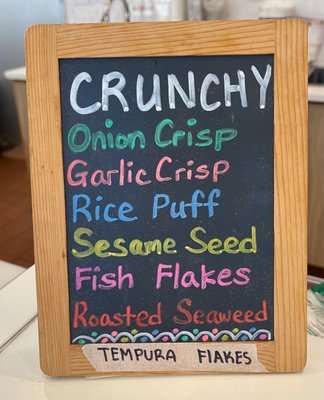 CRUNCHY
Onion Crisp
Garlic Crisp
Rice Puff
Sesame Seed
Fish Flakes
Roasted Seaweed
TEMPURA FLAKES